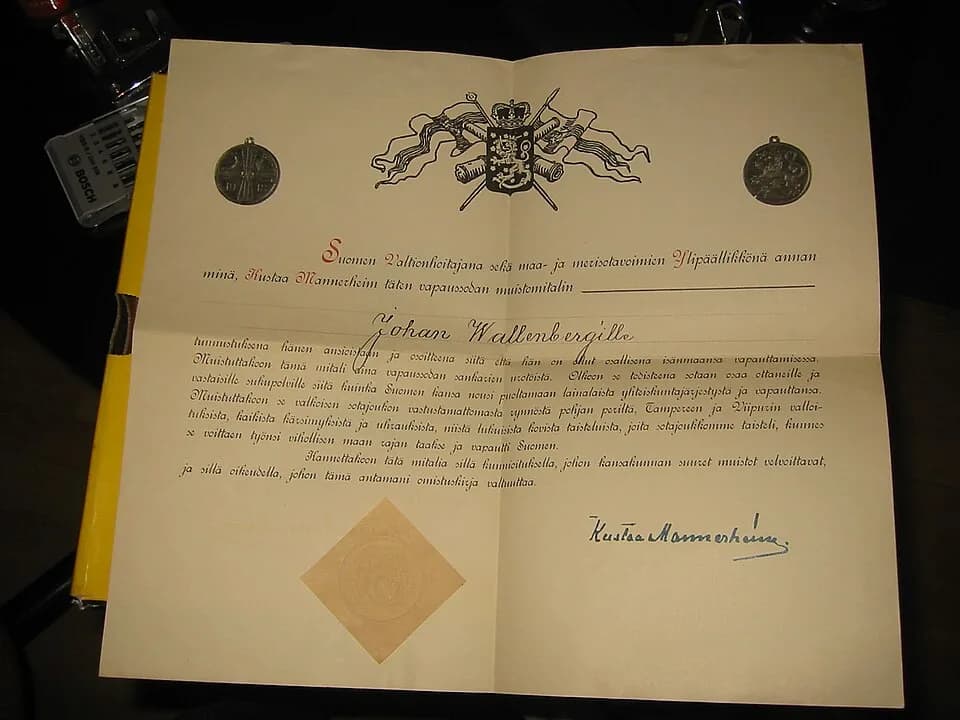 BOSCH
19 18
Suomen Valtionhoitajana sekä maa- ja merisotavoimien Ylipäällikkönä annan
minä, Kustaa Mannerheim täten vapaussodan muistomitalin
Johan Wallenberg'ille
tunnustuksena hänen ansioistaan ja osoitteena siitä että hän on ollut osallisena isänmaansa vapauttamisessa.
Muistuttakoon tämä mitali aina vapaussodan sankarien urotöistä. Olkoon se todisteena sotaan osaa ottaneille ja
vastaisille sukupolville siitä kuinka Suomen kansa nousi puoltamaan laillista yhteiskuntajärjestystä ja vapauttansa.
Muistuttakoon se valkoisen sotajoukon vastustamattomasta rynnöstä pohjan periltä, Tampereen ja Viipurin valloi-
tuksista, kaikista kärsimyksistä ja uhrauksista, niistä lukuisista kovista taisteluista, joita sotajoukkomme taisteli, kunnes
se voittaen työnsi vihollisen maan rajan taakse ja vapautti Suomen.
Kannettakoon tätä mitalia sillä kunnioituksella, johon kansakunnan suuret muistot velvoittavat,
ja sillä oikeudella, johon tämä antamani omistuskirja valtuuttaa.
Kustaa Mannerheim.